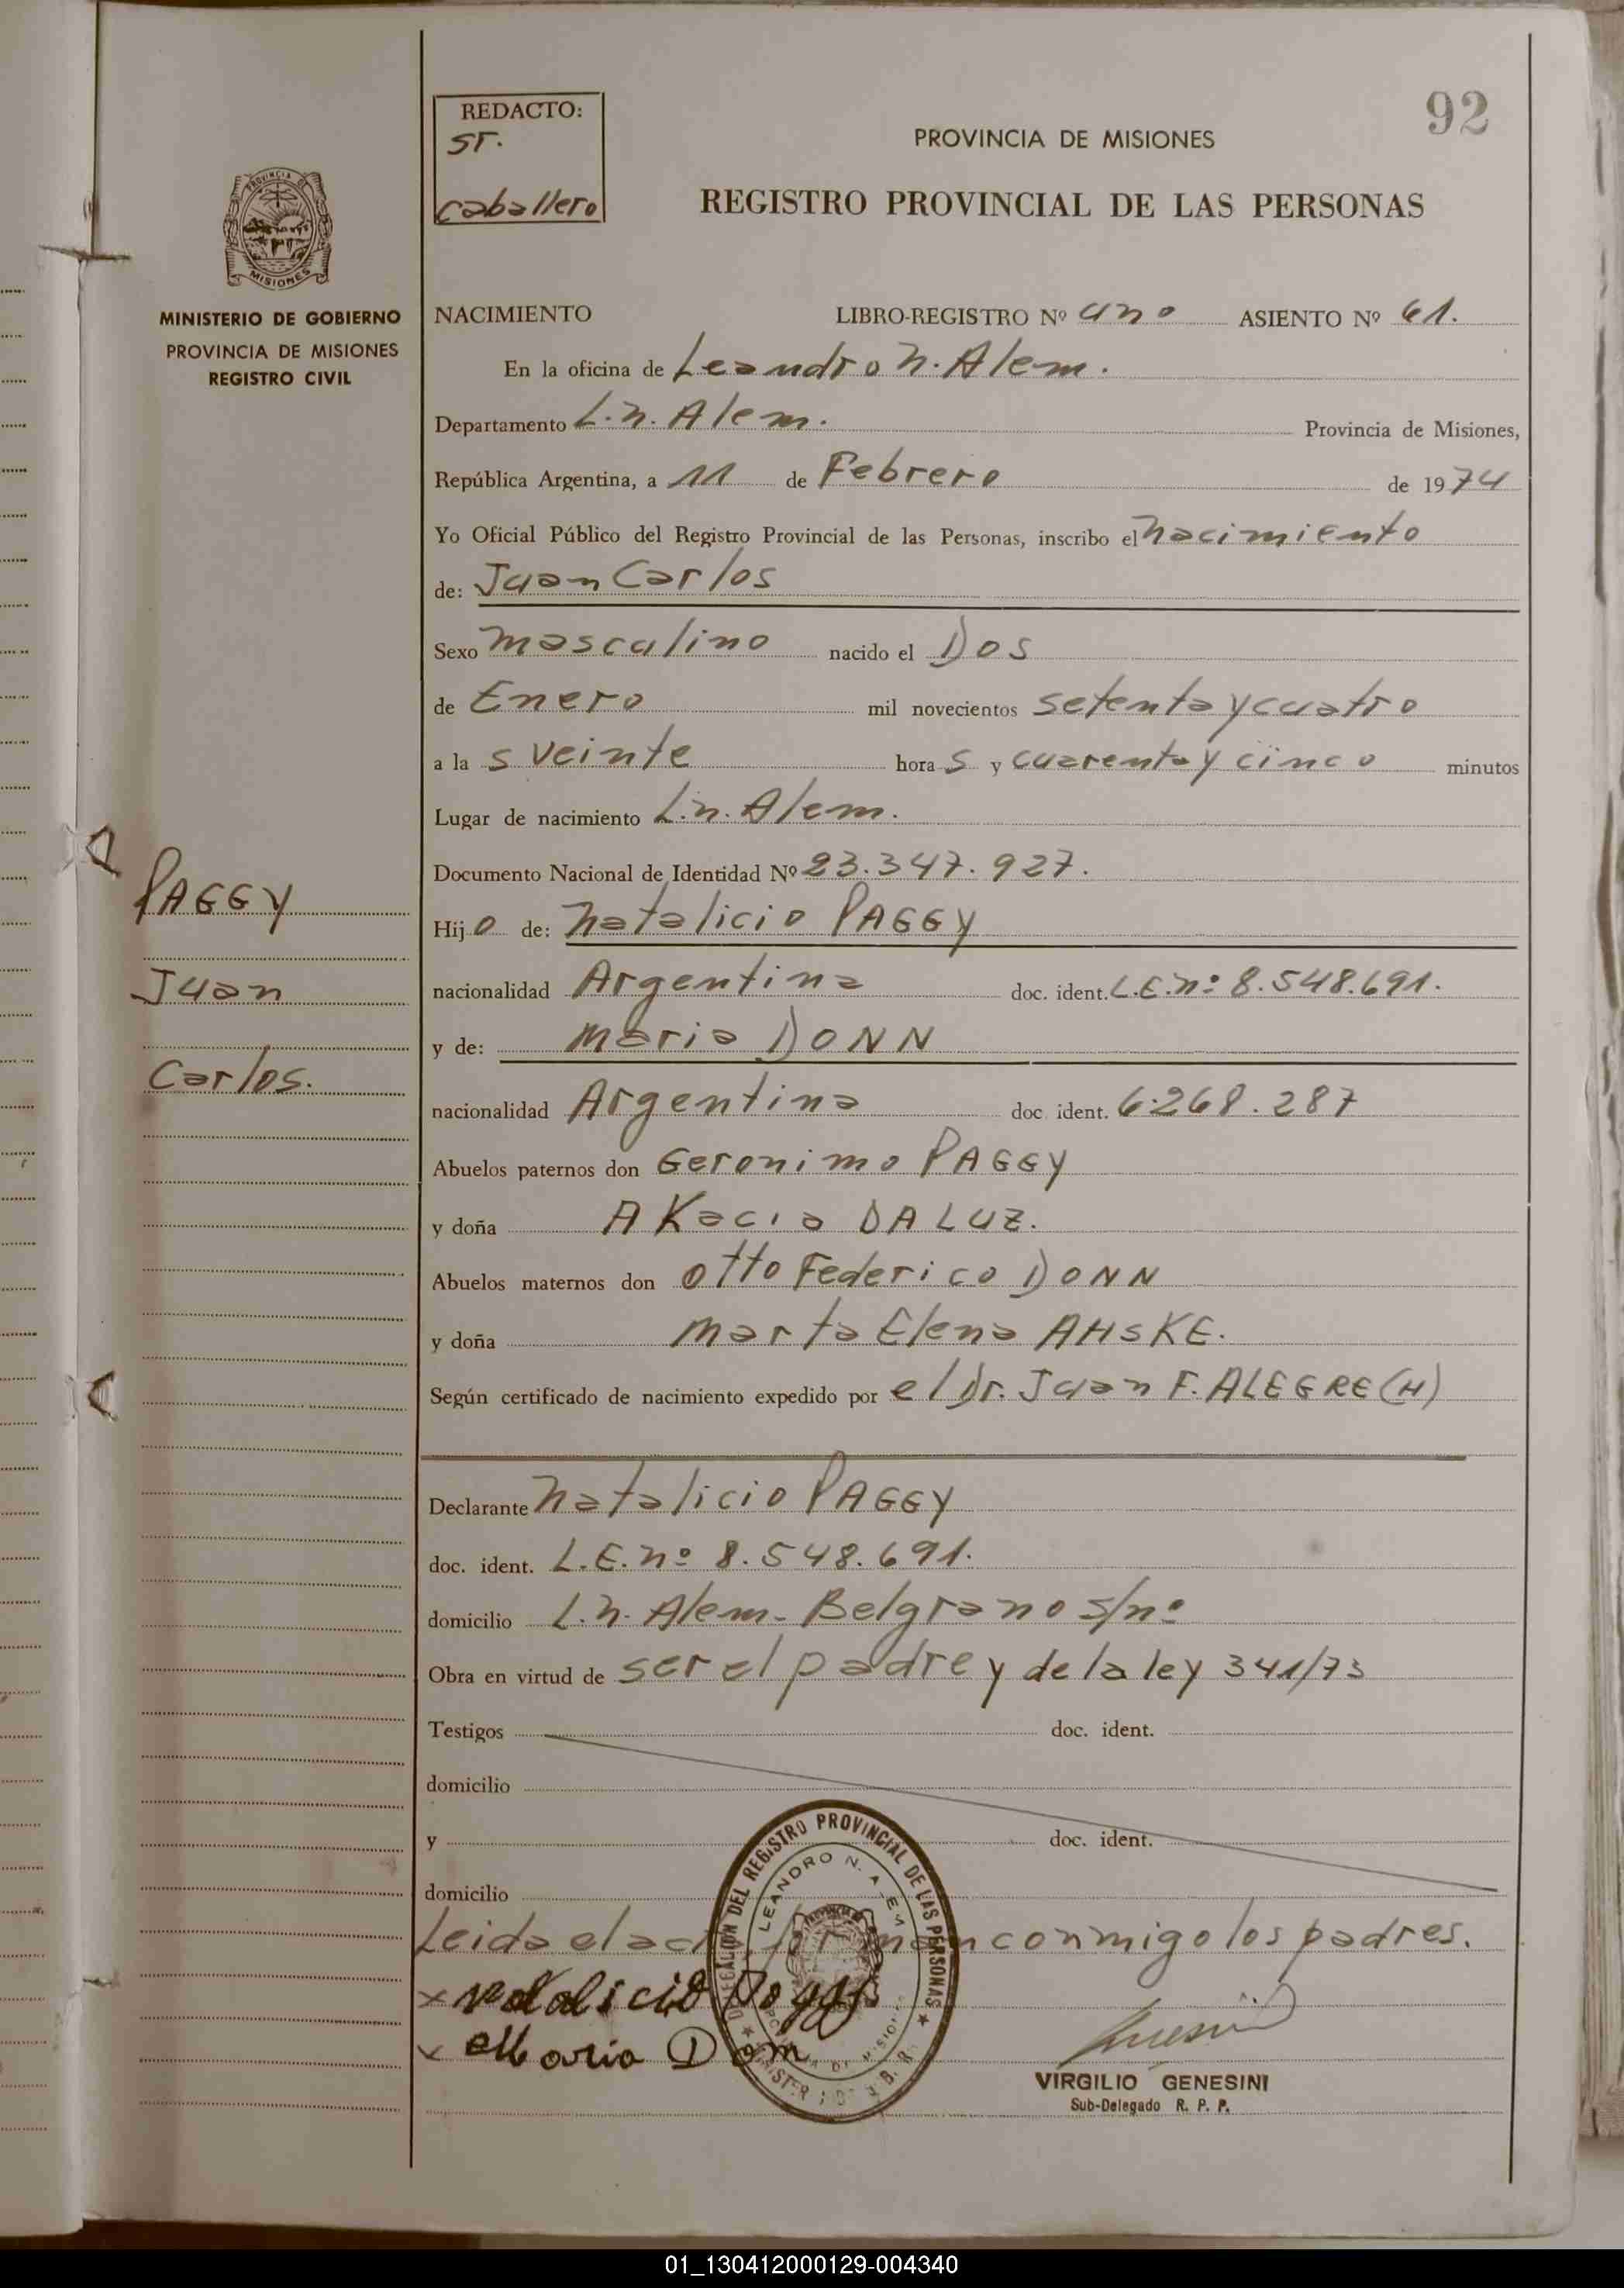 92
REDACTO:
Sr.
Caballero
PROVINCIA DE MISIONES
REGISTRO PROVINCIAL DE LAS PERSONAS
PROVINCIA DE
MISIONES
MINISTERIO DE GOBIERNO
PROVINCIA DE MISIONES
REGISTRO CIVIL
NACIMIENTO LIBRO-REGISTRO Nº uno ASIENTO Nº 61.
En la oficina de Leandro N. Alem.
Departamento L.N. Alem. Provincia de Misiones,
República Argentina, a 11 de Febrero de 1974
Yo Oficial Público del Registro Provincial de las Personas, inscribo el nacimiento
de: Juan Carlos
Sexo masculino nacido el Dos
de Enero mil novecientos setenta y cuatro
a la s veinte hora s y cuarenta y cinco minutos
Lugar de nacimiento L.N. Alem.
Documento Nacional de Identidad Nº 23.347.927.
PAGGY
Juan
Carlos.
Hij o de: Natalicio PAGGY
nacionalidad Argentina doc. ident. L.E.Nº 8.548.691.
y de: Maria DONN
nacionalidad Argentina doc. ident. 6.268.287
Abuelos paternos don Geronimo PAGGY
y doña AKacia DA LUZ.
Abuelos maternos don Otto Federico DONN
y doña Marta Elena AHSKE.
Según certificado de nacimiento expedido por el Dr. Juan F. ALEGRE (H)
Declarante Natalicio PAGGY
doc. ident. L.E.Nº 8.548.691.
domicilio L.N. Alem - Belgrano s/nº
Obra en virtud de ser el padre y de la ley 341/73
Testigos doc. ident.
domicilio
y doc. ident.
domicilio
Leida el acta, firman conmigo los padres.
x Natalicio Paggy
x Maria Donn
DELEGACION DEL REGISTRO PROVINCIAL DE LAS PERSONAS
LEANDRO N. ALEM
VIRGILIO GENESINI
Sub-Delegado R. P. P.
01_130412000129-004340